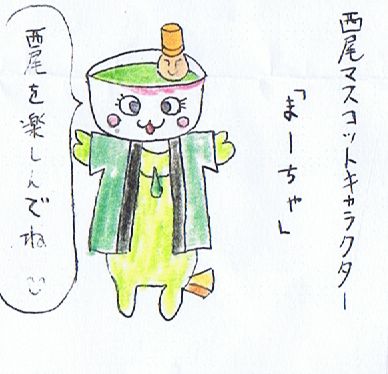 西尾マスコットキャラクター
「まーちゃ」
西尾を楽しんでね